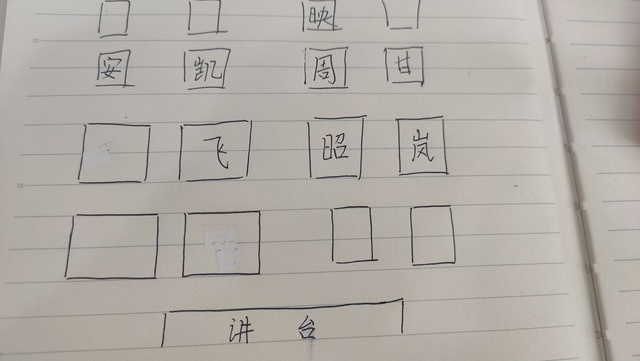 映
安 凯 周 甘
飞 昭 岚
讲 台